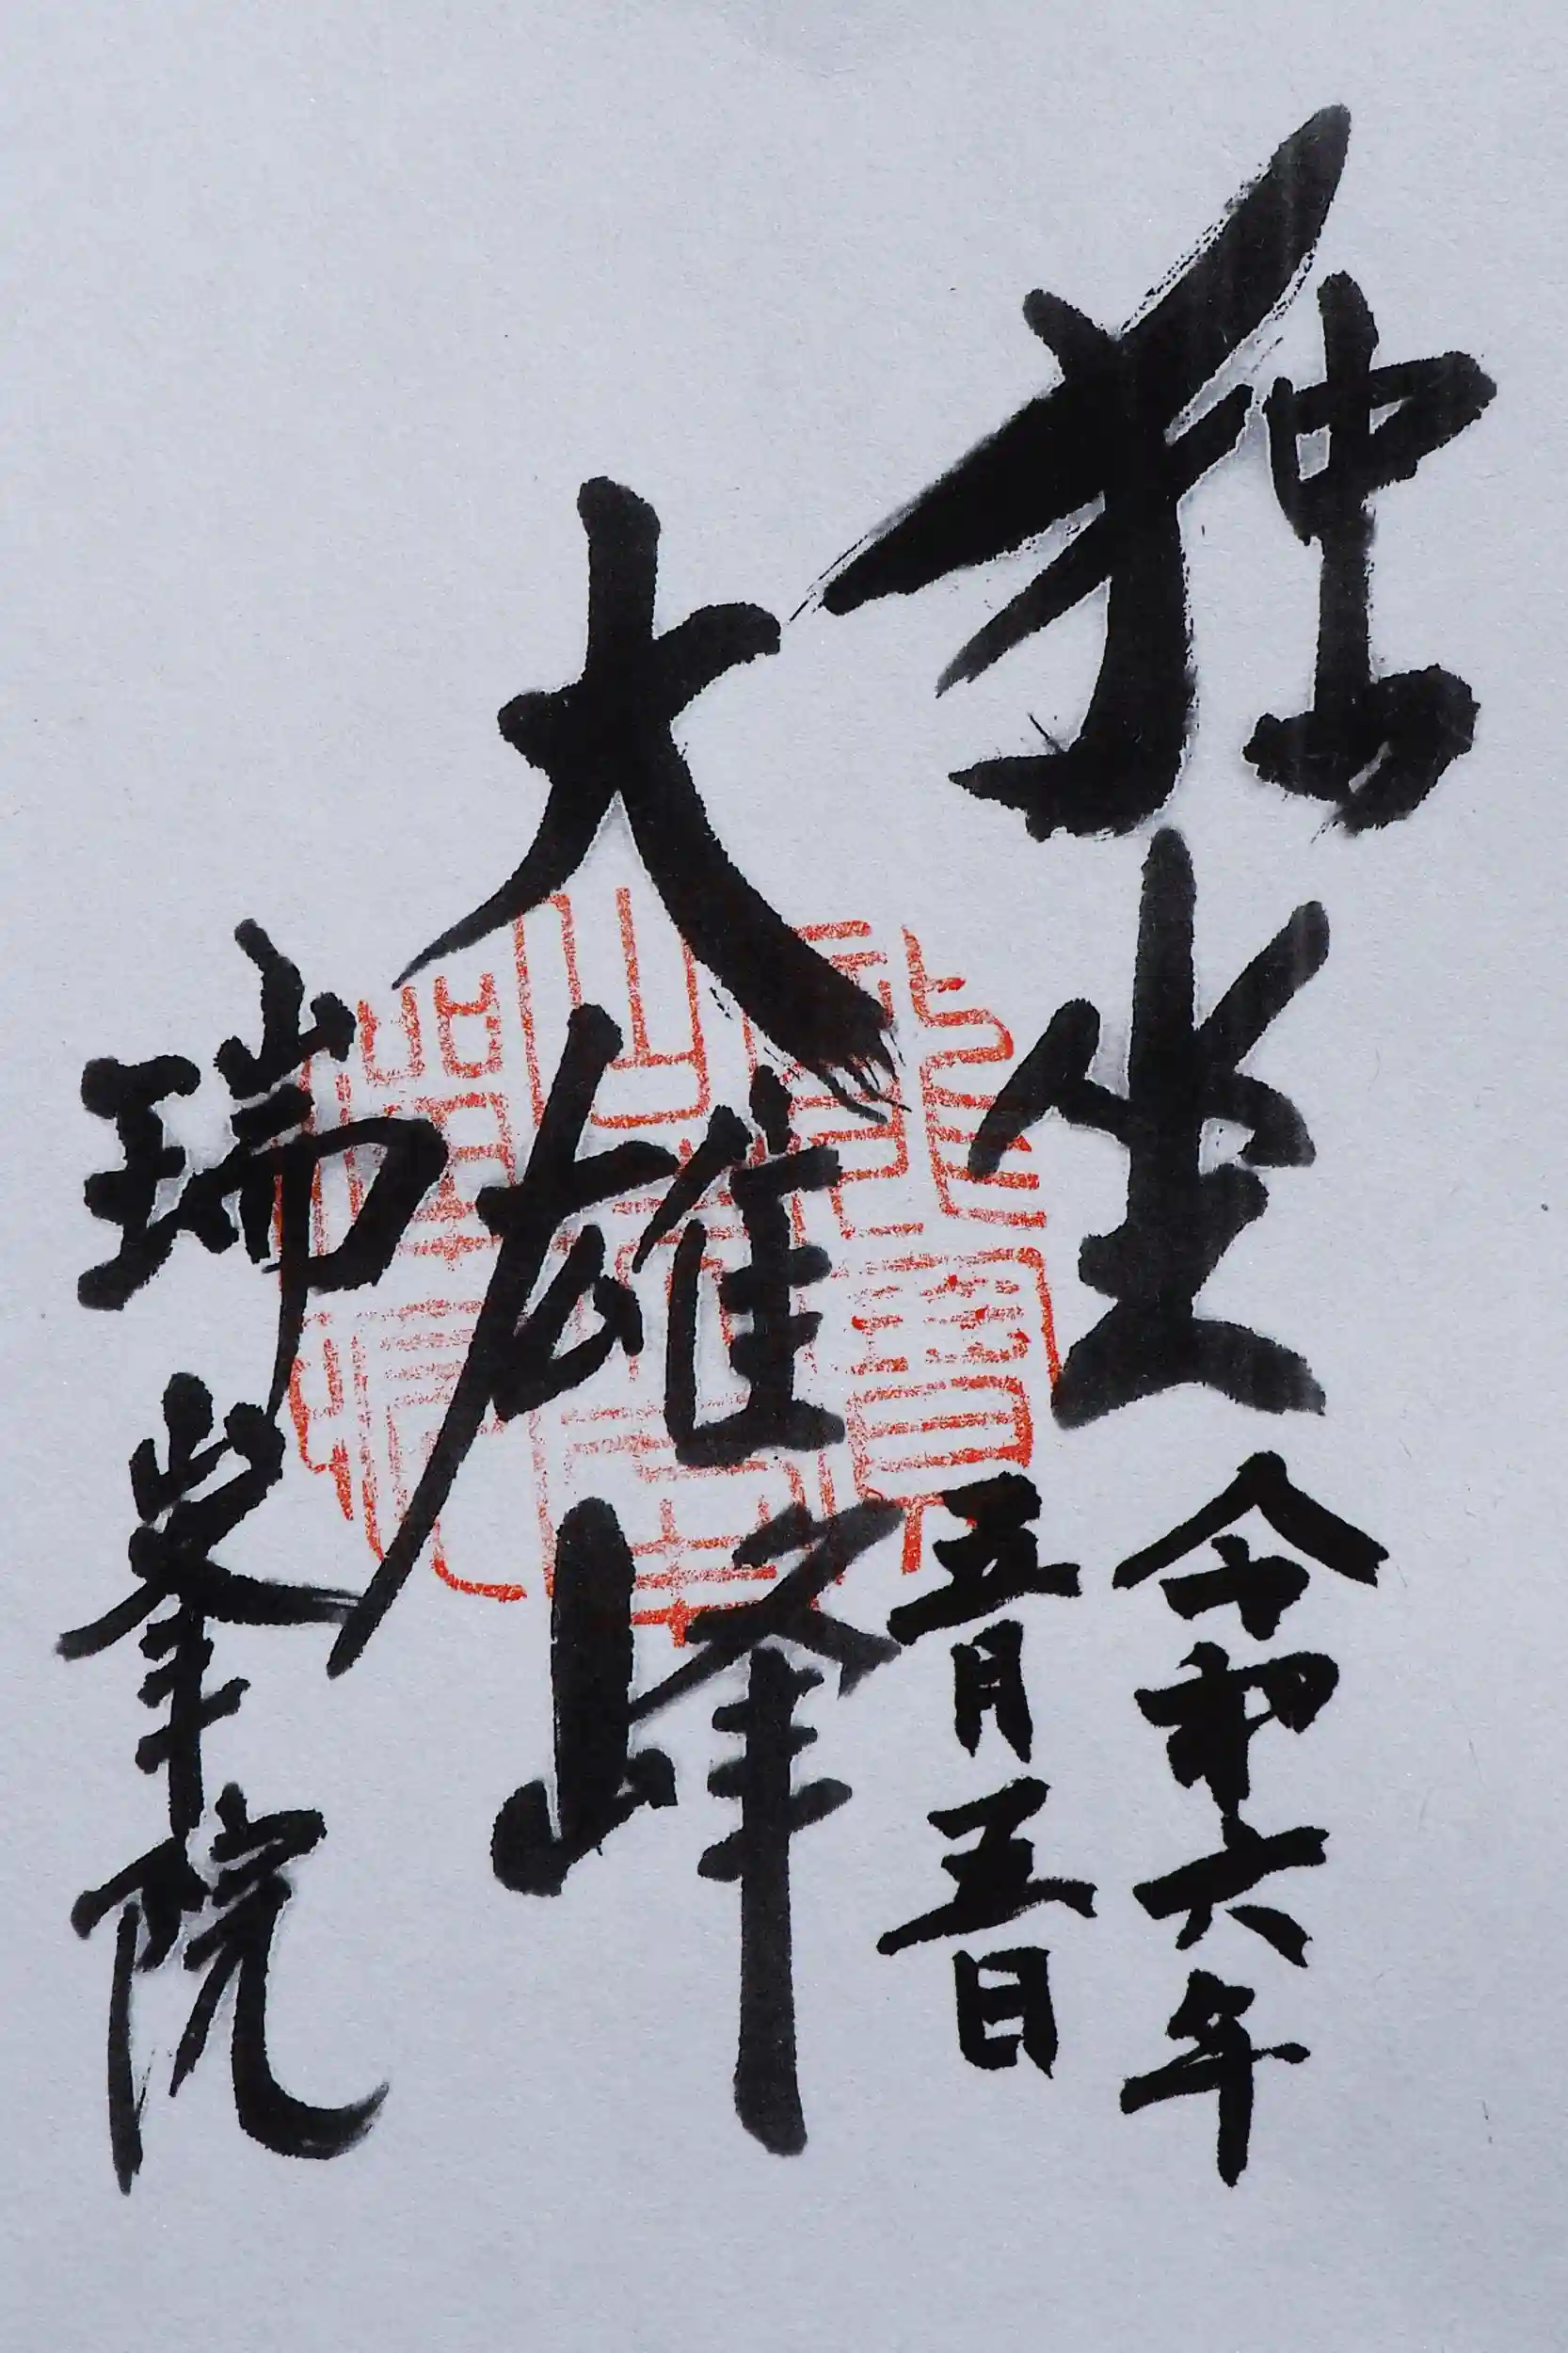 独坐
令和六年
五月五日
大雄峰
瑞峯院